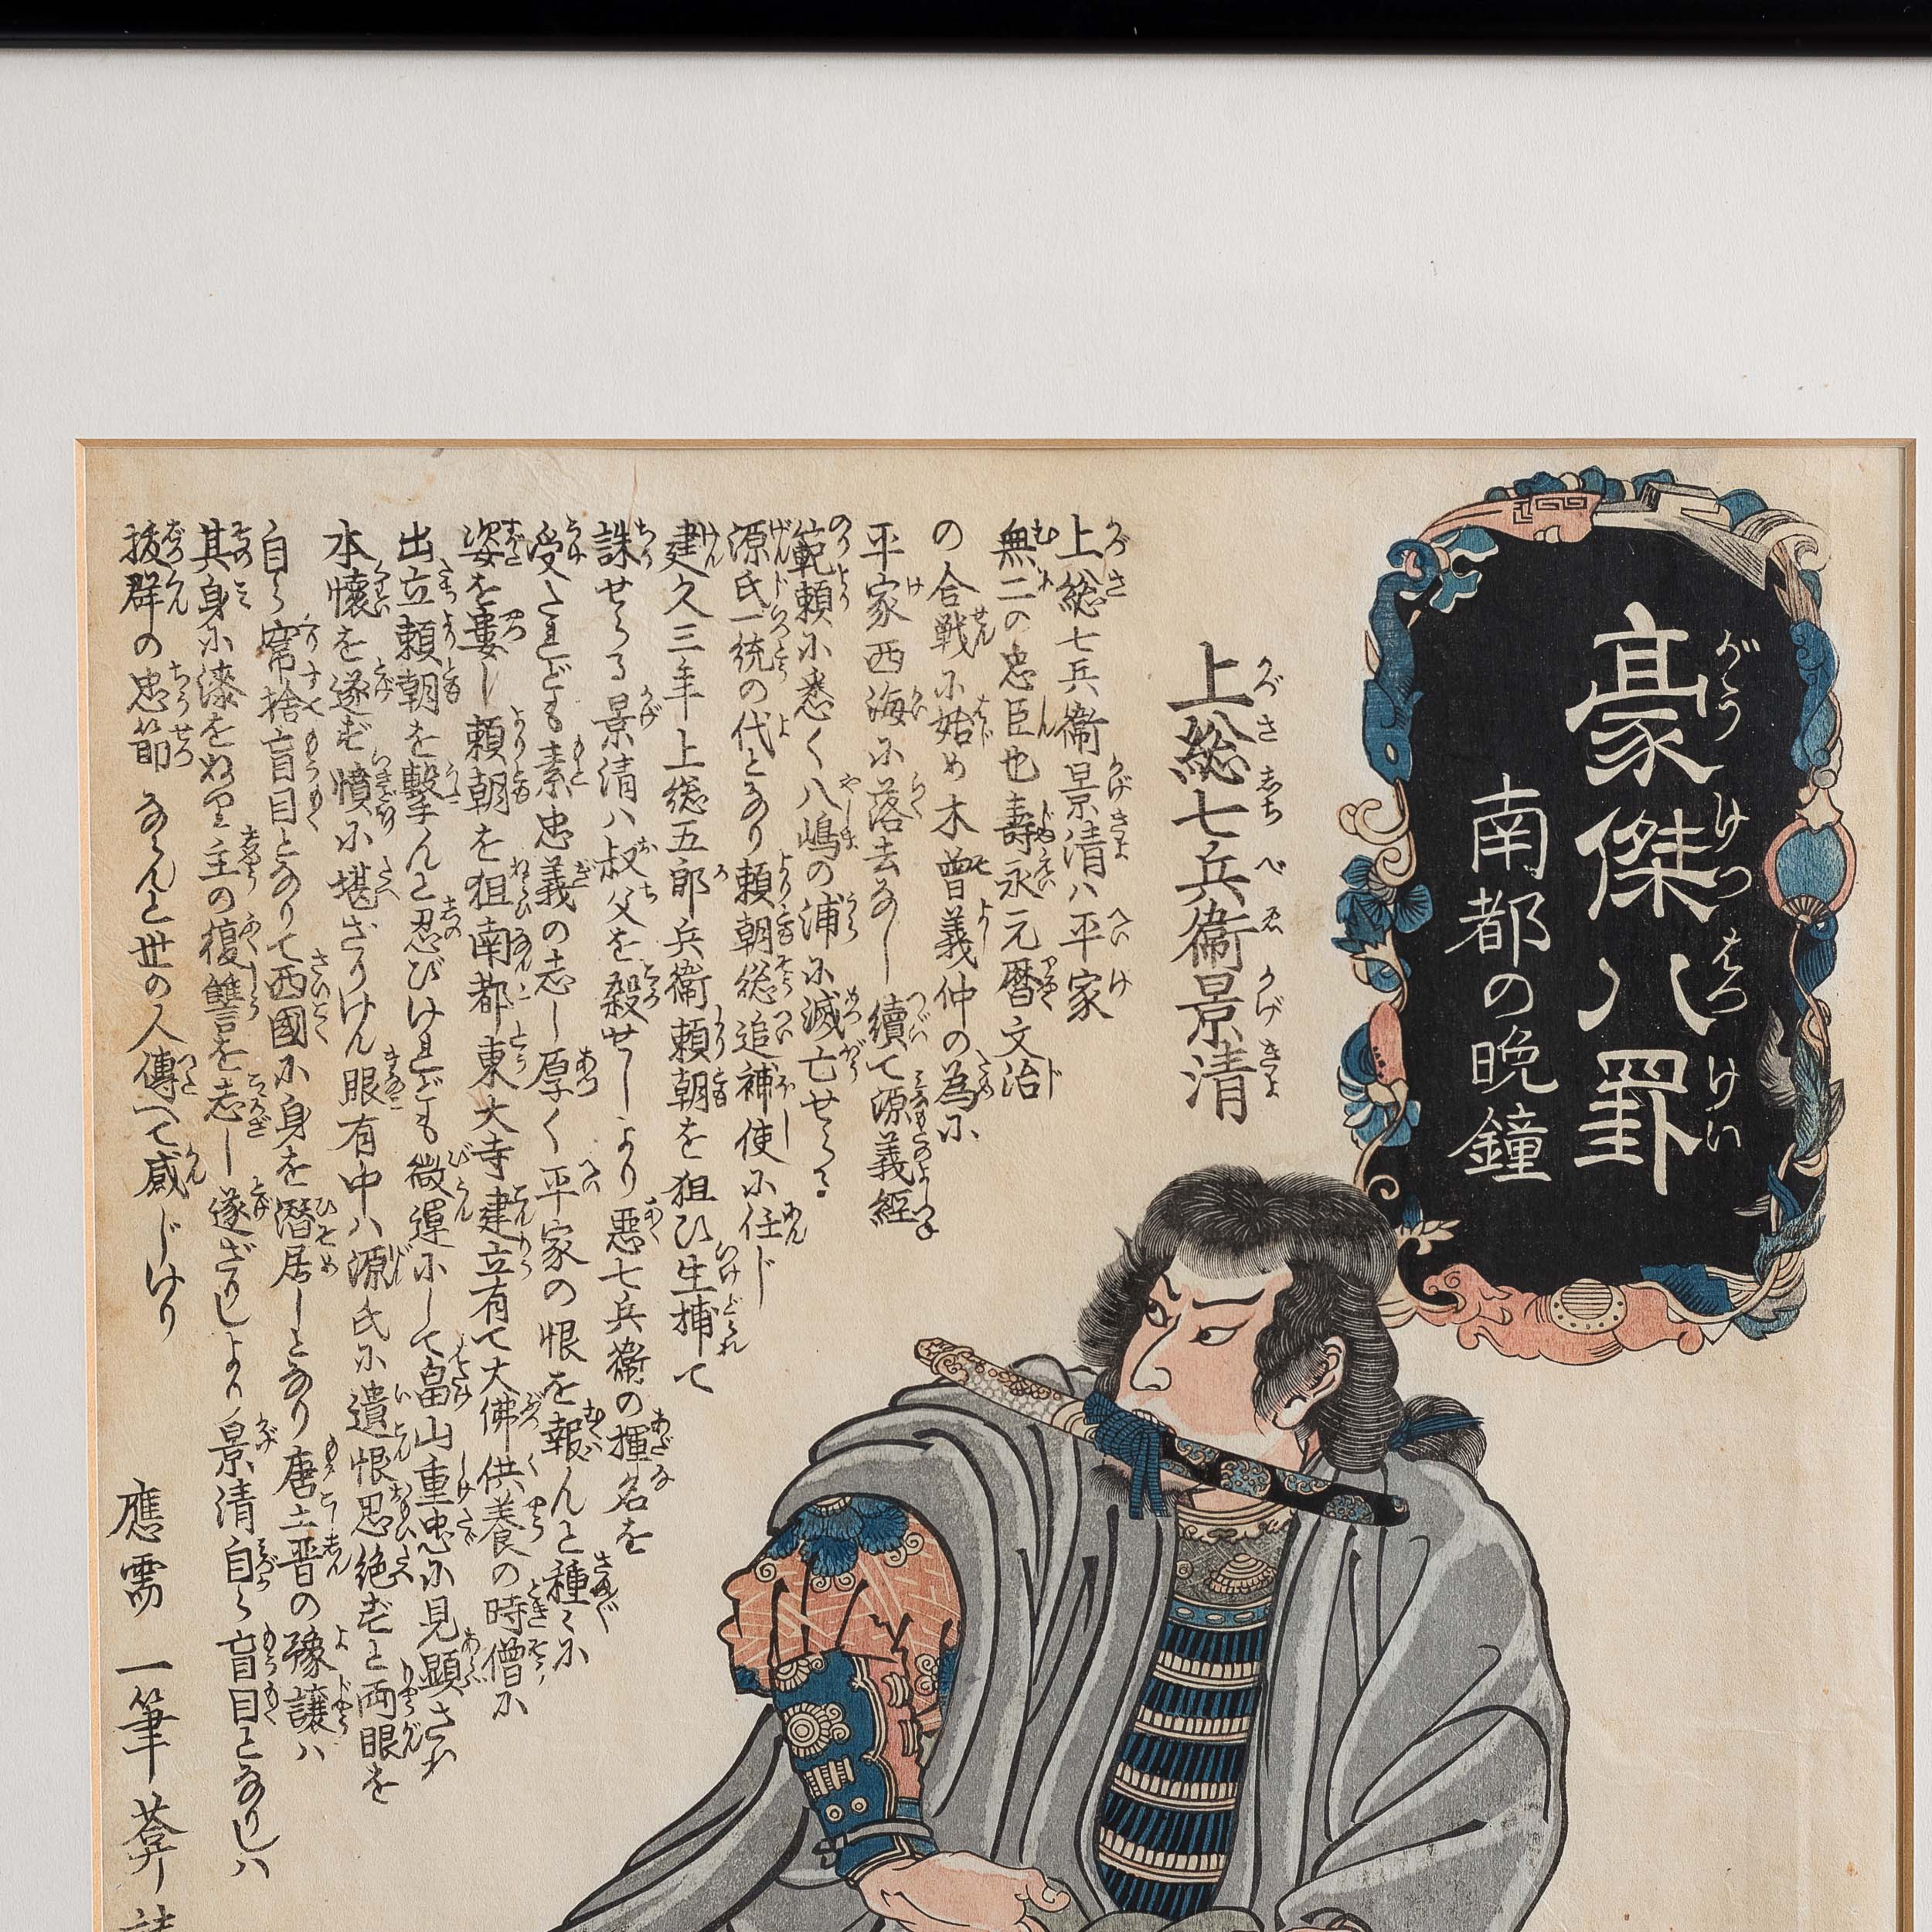 豪傑八罫
がうけつはつけい
南都の晩鐘
上総七兵衞景清
かづさしちべゑかげきよ
上総七兵衞景清ハ平家
無二の忠臣也壽永元暦文治
の合戦に始め木曽義仲の為に
平家西海に落去なし續て源義經
範頼に悉く八嶋の浦に滅亡せらる
源氏一統の代となり頼朝総追補使に任じ
建久三年上総五郎兵衞頼朝を狙ひ生捕て
誅せらる景清ハ叔父を殺せしより悪七兵衞の揮名を
受たれども素忠義の志し厚く平家の恨を報んと種〻に
姿を婁し頼朝を狙南都東大寺建立有て大佛供養の時僧に
出立頼朝を撃んと忍びけれども微運にして畠山重忠に見顕され
本懐を遂ず憤に堪ざりけん眼有中ハ源氏に遺恨思絶ずと両眼を
自ら捨盲目となりて西國に身を潜居しとなり唐土晋の豫譲ハ
其身に漆をぬり主の復讐を志し遂ざりしより景清自ら盲目となりしハ
抜群の忠節ならんと世の人傳へて感じけり
應需 一筆葊誌